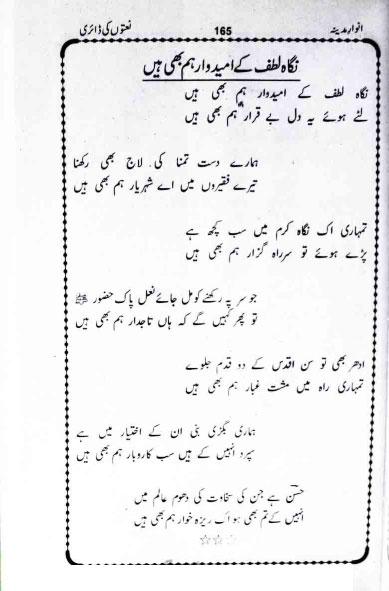 انوار مدینہ 165 نعتوں کی ڈائری
نگاہ لطف کے امیدوار ہم بھی ہیں
نگاہ لطف کے امیدوار ہم بھی ہیں
لئے ہوئے یہ دل بے قرار ہم بھی ہیں
ہمارے دست تمنا کی لاج بھی رکھنا
تیرے فقیروں میں اے شہریار ہم بھی ہیں
تمہاری اک نگاہ کرم میں سب کچھ ہے
پڑے ہوئے تو سرراہ گزار ہم بھی ہیں
جو سر پہ رکھنے کو مل جائے نعل پاک حضور ﷺ
تو پھر کہیں گے کہ ہاں تاجدار ہم بھی ہیں
ادھر بھی تو سن اقدس کے دو قدم جلوے
تمہاری راہ میں مشت غبار ہم بھی ہیں
ہماری بگڑی بنی ان کے اختیار میں ہے
سپرد انہیں کے ہیں سب کاروبار ہم بھی ہیں
حسن ہے جن کی سخاوت کی دھوم عالم میں
انہیں کے تم بھی ہو اک ریزہ خوار ہم بھی ہیں